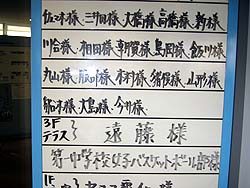 佐々木様、三井田様、大橋様、高橋様、新様
川合様、相田様、朝賀様、島岡様、飯川様
丸山様、阪川様、木村様、猪俣様、山形様
船木様、大島様、今井様
3F
テラス 遠藤様
第一中学校女子バスケットボール部様
1F